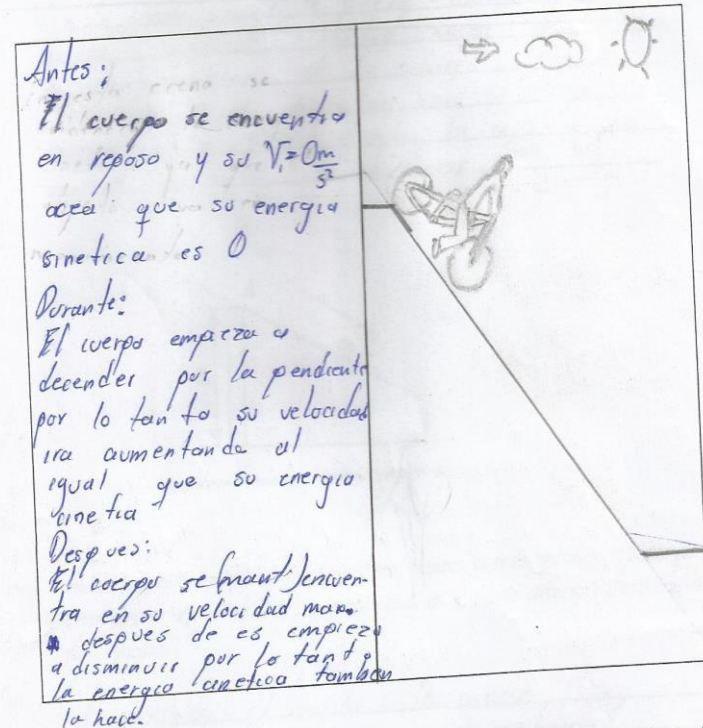 Antes:
El cuerpo se encuentra
en reposo y su V₁=0m/s²
ocea que su energia
sinetica es 0
Durante:
El cuerpo empieza a
decender por la pendiente
por lo tanto su velocidad
ira aumentando al
igual que su energia
cinetia
Despues:
El cuerpo se (mant) encuen-
tra en su velocidad max.
despues de es empieza
a disminuir por lo tanto
la energia cinetica tambien
lo hace.